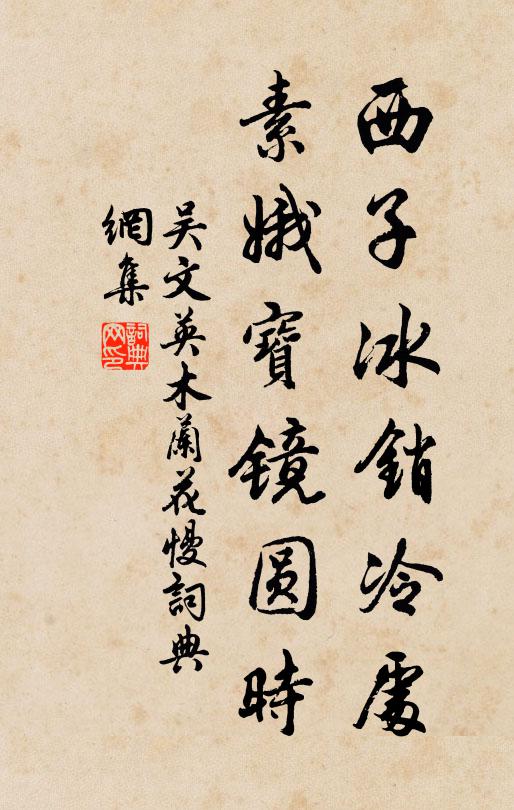 西子冰銷冷處
素娥寶鏡圓時
吴文英木蘭花慢詞典
網集
詞典網印